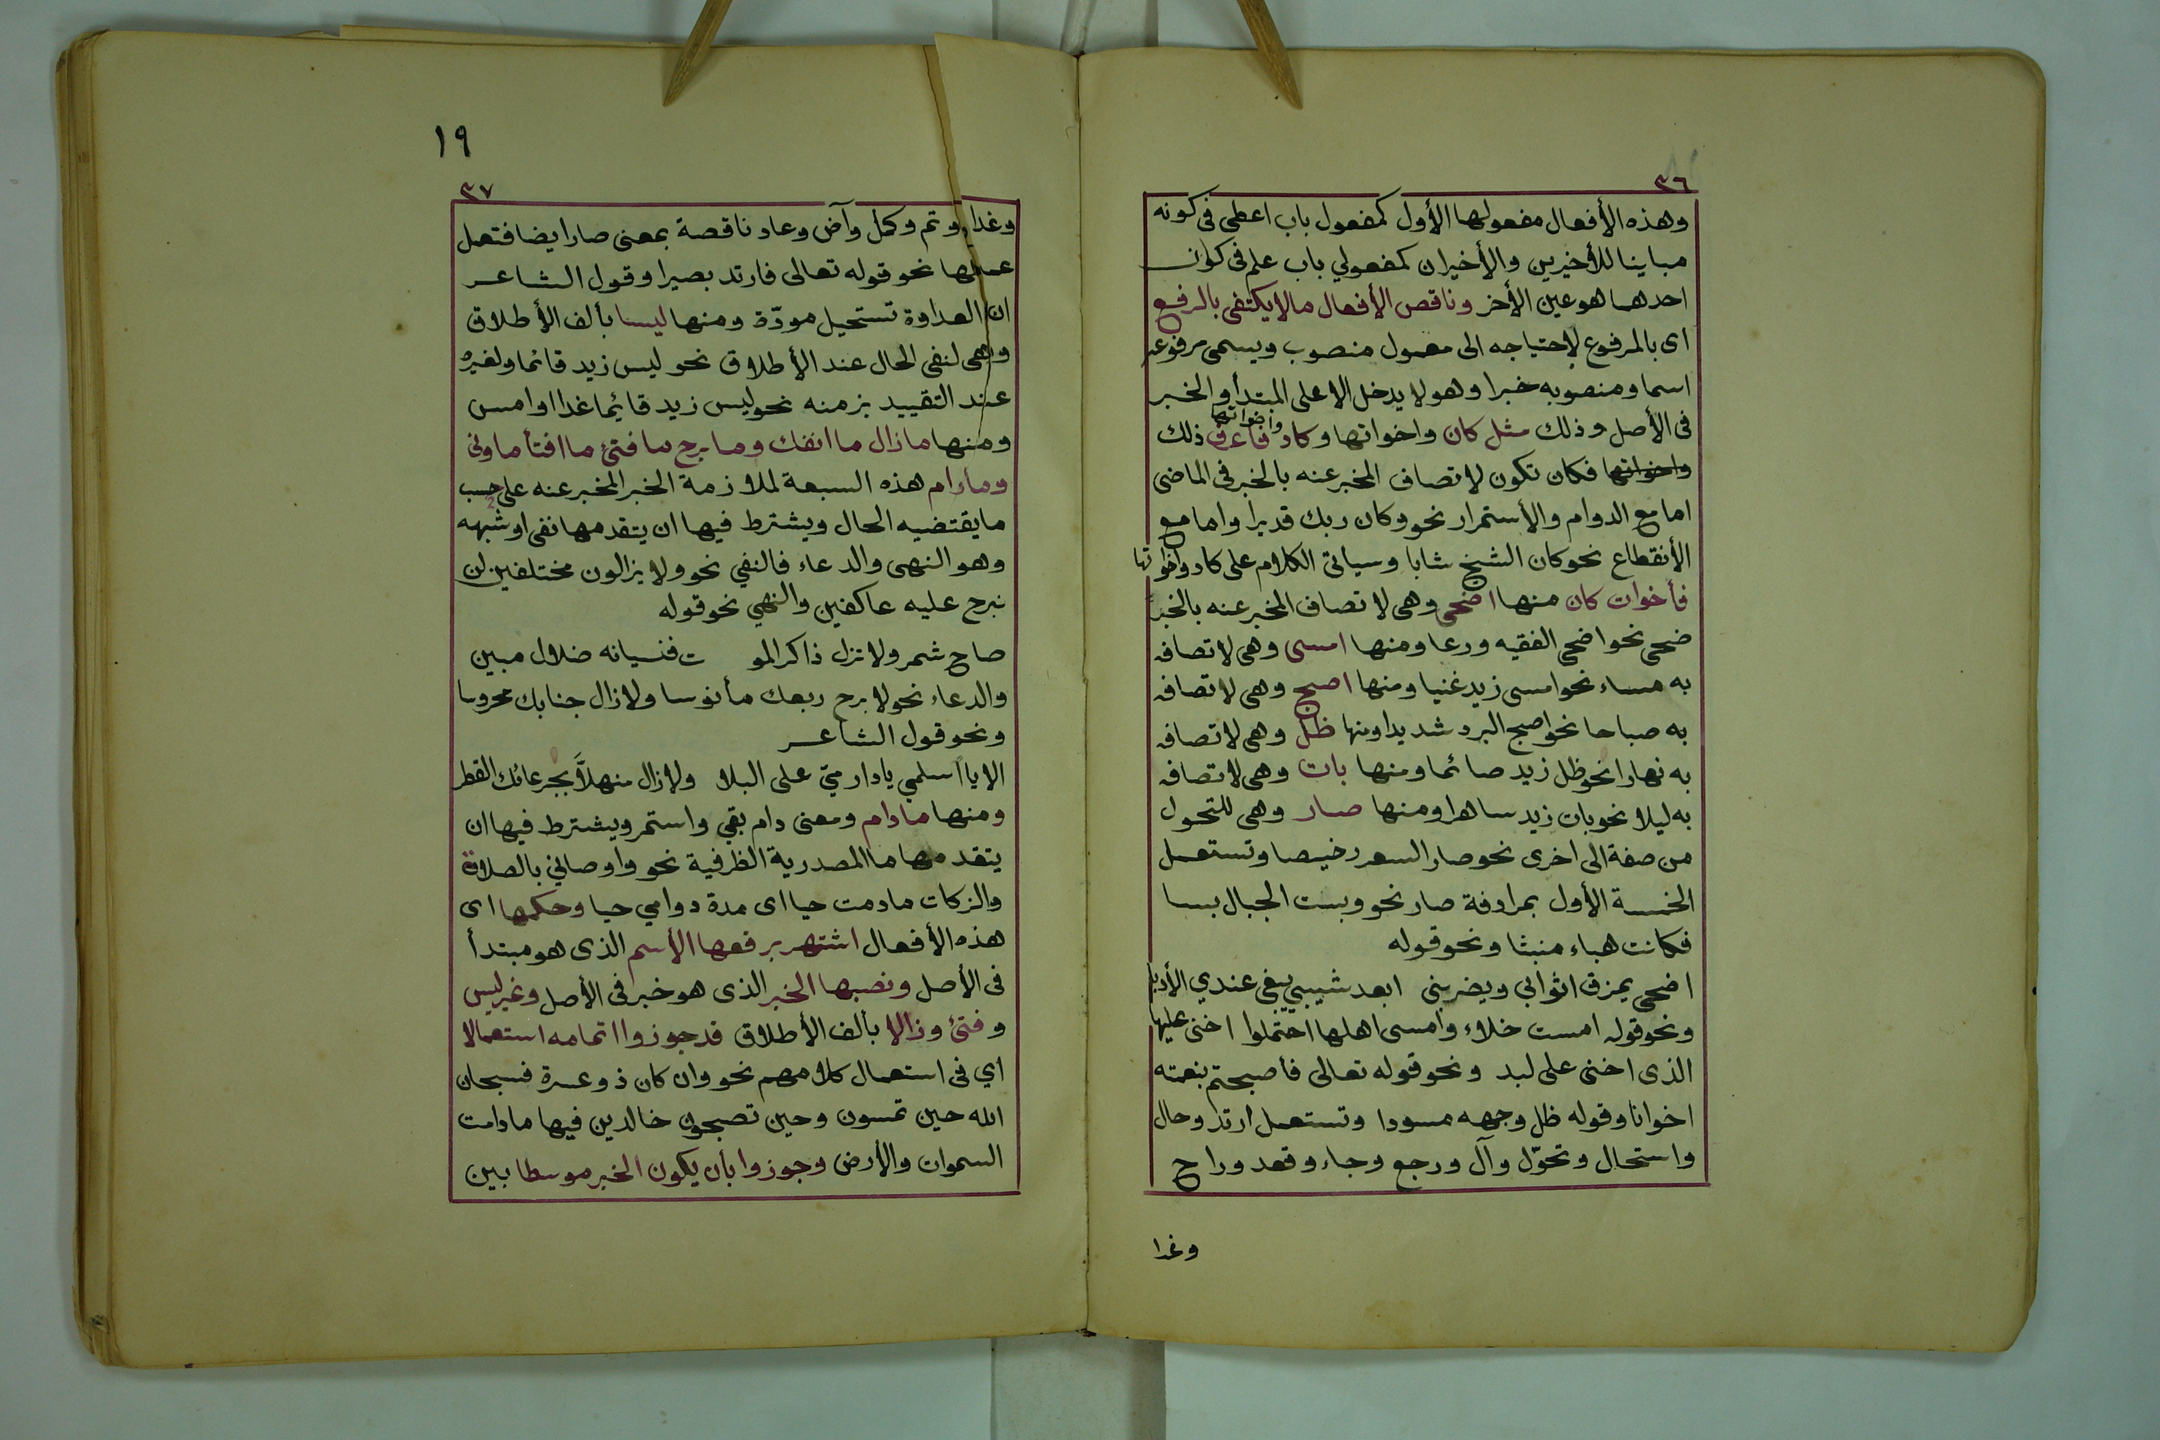 ٣٦
وهذه الأفعال مفعولها الأول كمفعول باب اعطى فى كونه
مباينا للأخيرين والأخيران كمفعولي باب علم فى كون
احدهما هو عين الأخر وناقص الأفعال مالا يكتفى بالرفع
اى بالمرفوع لإحتياجه الى معمول منصوب ويسمى مرفوعه
اسما ومنصوبه خبرا وهو لا يدخل الا على المبتدأ والخبر
فى الأصل وذلك مثل كان واخواتها وكاد واخواتها فاعرف ذلك
واخواتها فكان تكون لاتصاف المخبر عنه بالخبر فى الماضى
اما مع الدوام والأستمرار نحو وكان ربك قديرا واما مع
الأنقطاع نحو كان الشيخ شابا وسياتى الكلام على كاد واخواتها
فأخوات كان منها اضحى وهى لاتصاف المخبر عنه بالخبر
ضحى نحو اضحى الفقيه ورعا ومنها امسى وهى لاتصافه
به مساء نحو امسى زيد غنيا ومنها اصبح وهى لاتصافه
به صباحا نحو اصبح البرد شديدا ومنها ظل وهى لاتصافه
به نهارا نحو ظل زيد صائما ومنها بات وهى لاتصافه
به ليلا نحو بات زيد ساهرا ومنها صار وهى للتحول
من صفة الى اخرى نحو صار السعر رخيصا وتستعمل
الخمسة الأول بمرادفة صار نحو وبست الجبال بسا
فكانت هباء منبثا ونحو قوله
اضحى يمزق اثوابي ويضربنى ابعد شيبي يبغى عندي الأدبا
ونحو قوله امست خلاء وامسى اهلها احتملوا اخنى عليها
الذى اخنى على لبد ونحو قوله تعالى فأصبحتم بنعمته
اخوانا وقوله ظل وجهه مسودا وتستعمل ارتد وحال
واستحال وتحوّل وآل ورجع وجاء وقعد وراح
وغدا
١٩
٣٧
وغدا وتم وكمل وآض وعاد ناقصة بمعنى صار ايضا فتعمل
عملها نحو قوله تعالى فارتد بصيرا وقول الشاعر
ان العداوة تستحيل مودّة ومنها ليسا بألف الأطلاق
وهى لنفى الحال عند الأطلاق نحو ليس زيد قائما ولغيره
عند التقييد بزمنه نحو ليس زيد قائيما غدا او امس
ومنها مازال ما انفك وما برح ما فتئ ما افتأ ما ونى
ومارام هذه السبعة لملازمة الخبر المخبر عنه على حسب
ما يقتضيه الحال ويشترط فيها ان يتقدمها نفى او شبهه
وهو النهى والدعاء فالنفي نحو ولا يزالون مختلفين لن
نبرح عليه عاكفين والنهي نحو قوله
صاح شمر ولا تزل ذاكر المو ت فنسيانه ضلال مبين
والدعاء نحو لا برح ربعك مأنوسا ولا زال جنابك محروسا
ونحو قول الشاعر
الا يا اسلمي يا دار ميّ على البلا ولا زال منهلاًّ بجرعائك القطر
ومنها مادام ومعنى دام بقي واستمر ويشترط فيها ان
يتقدمها ما المصدرية الظرفية نحو واوصاني بالصلاة
والزكات مادمت حيا اى مدة دوامي حيا وحكمها اى
هذه الأفعال اشتهر برفعها الأسم الذى هو مبتدأ
فى الأصل ونصبها الخبر الذى هو خبر فى الأصل وغير ليس
وفتئ وزالا بألف الأطلاق قد جوزوا اتمامه استعمالا
اي فى استعمال كلامهم نحو وان كان ذو عسرة فسبحان
الله حين تمسون وحين تصبحون خالدين فيها مادامت
السموات والأرض وجوزوا بأن يكون الخبر موسطا بين